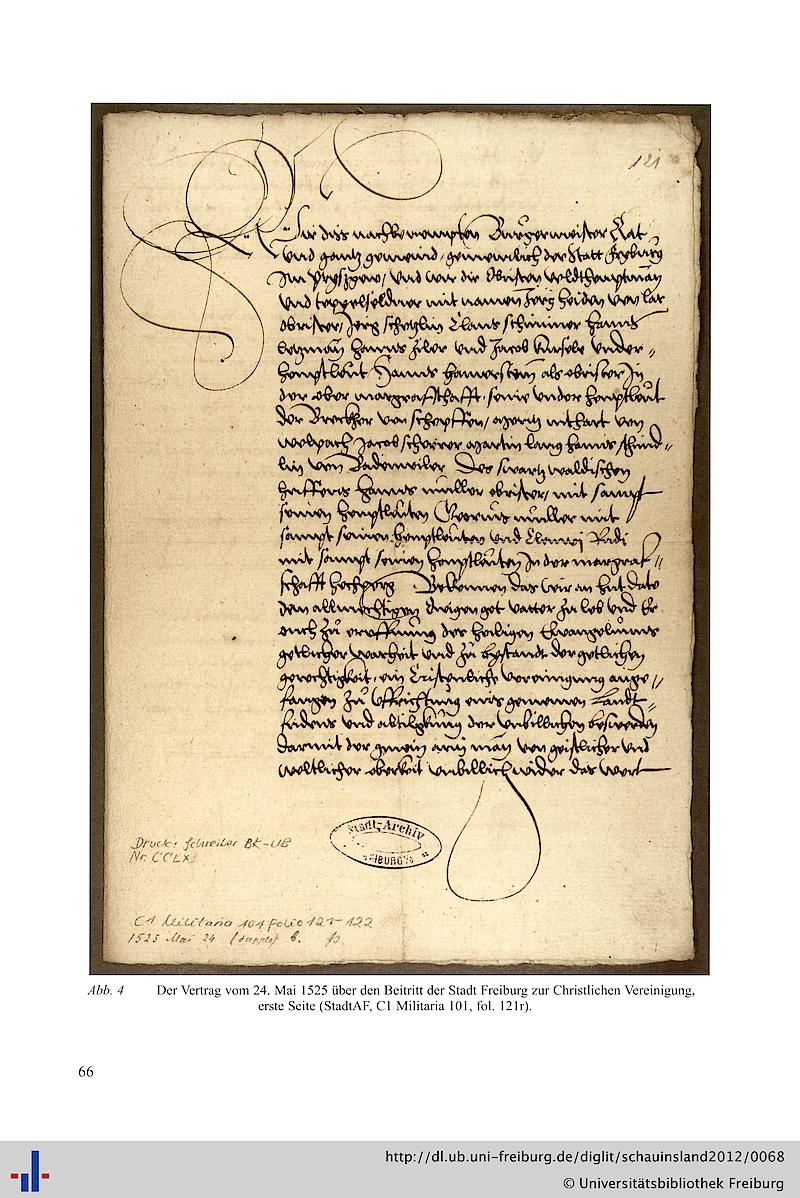 121
Wir diss nachbenempten Burgermeister Rat
und gantz gemeind, gemeinlich der Statt Fryburg
Im Pryszgew, und wir die Obristen veldthauptman
und
obrister, Jerg Claus schirmer hanns
hanns Ziler und Jacob under-
hauptleut Hanns hamerstein als obrister In
der ober marggrafschafft, seine under hauptleut
der von von
Jacob martin lang hanns
lin von Badenweiler Des swartzwaldischen
hanns müller obrister, mit sampt
seinen hauptleuten müller mit
sampt seinen hauptleuten und Clewi Rudi
mit sampt seinen hauptleuten In der marggraf-
schafft hochperg Bekennen das wir an hut dato
dem allmechtigen ewigen got vatter zu lob und Er
ouch zu eroffnung der heiligen Ewangeliums
getlicher warheit und zu bystandt der getlichen
gerechtigkeit, ein Cristenliche vereinigung ange-
fangen zu uffrichtung eins gemeinen Landt-
fridens und abtilgkung der unbillichen beswerden
darmit der gmein arm man von geistlicher und
weltlicher oberkeit unbillich wider das wort
Druck: Schreiber BK-UB
Nr. CCLXI
Stadt-Archiv
FREIBURG i/B
C1 Militaria 101 folio 121-122
1525 Mai 24
Abb. 4 Der Vertrag vom 24. Mai 1525 über den Beitritt der Stadt Freiburg zur Christlichen Vereinigung,
erste Seite (StadtAF, C1 Militaria 101, fol. 121r).
66
http://dl.ub.uni-freiburg.de/diglit/schauinsland2012/0068
© Universitätsbibliothek Freiburg